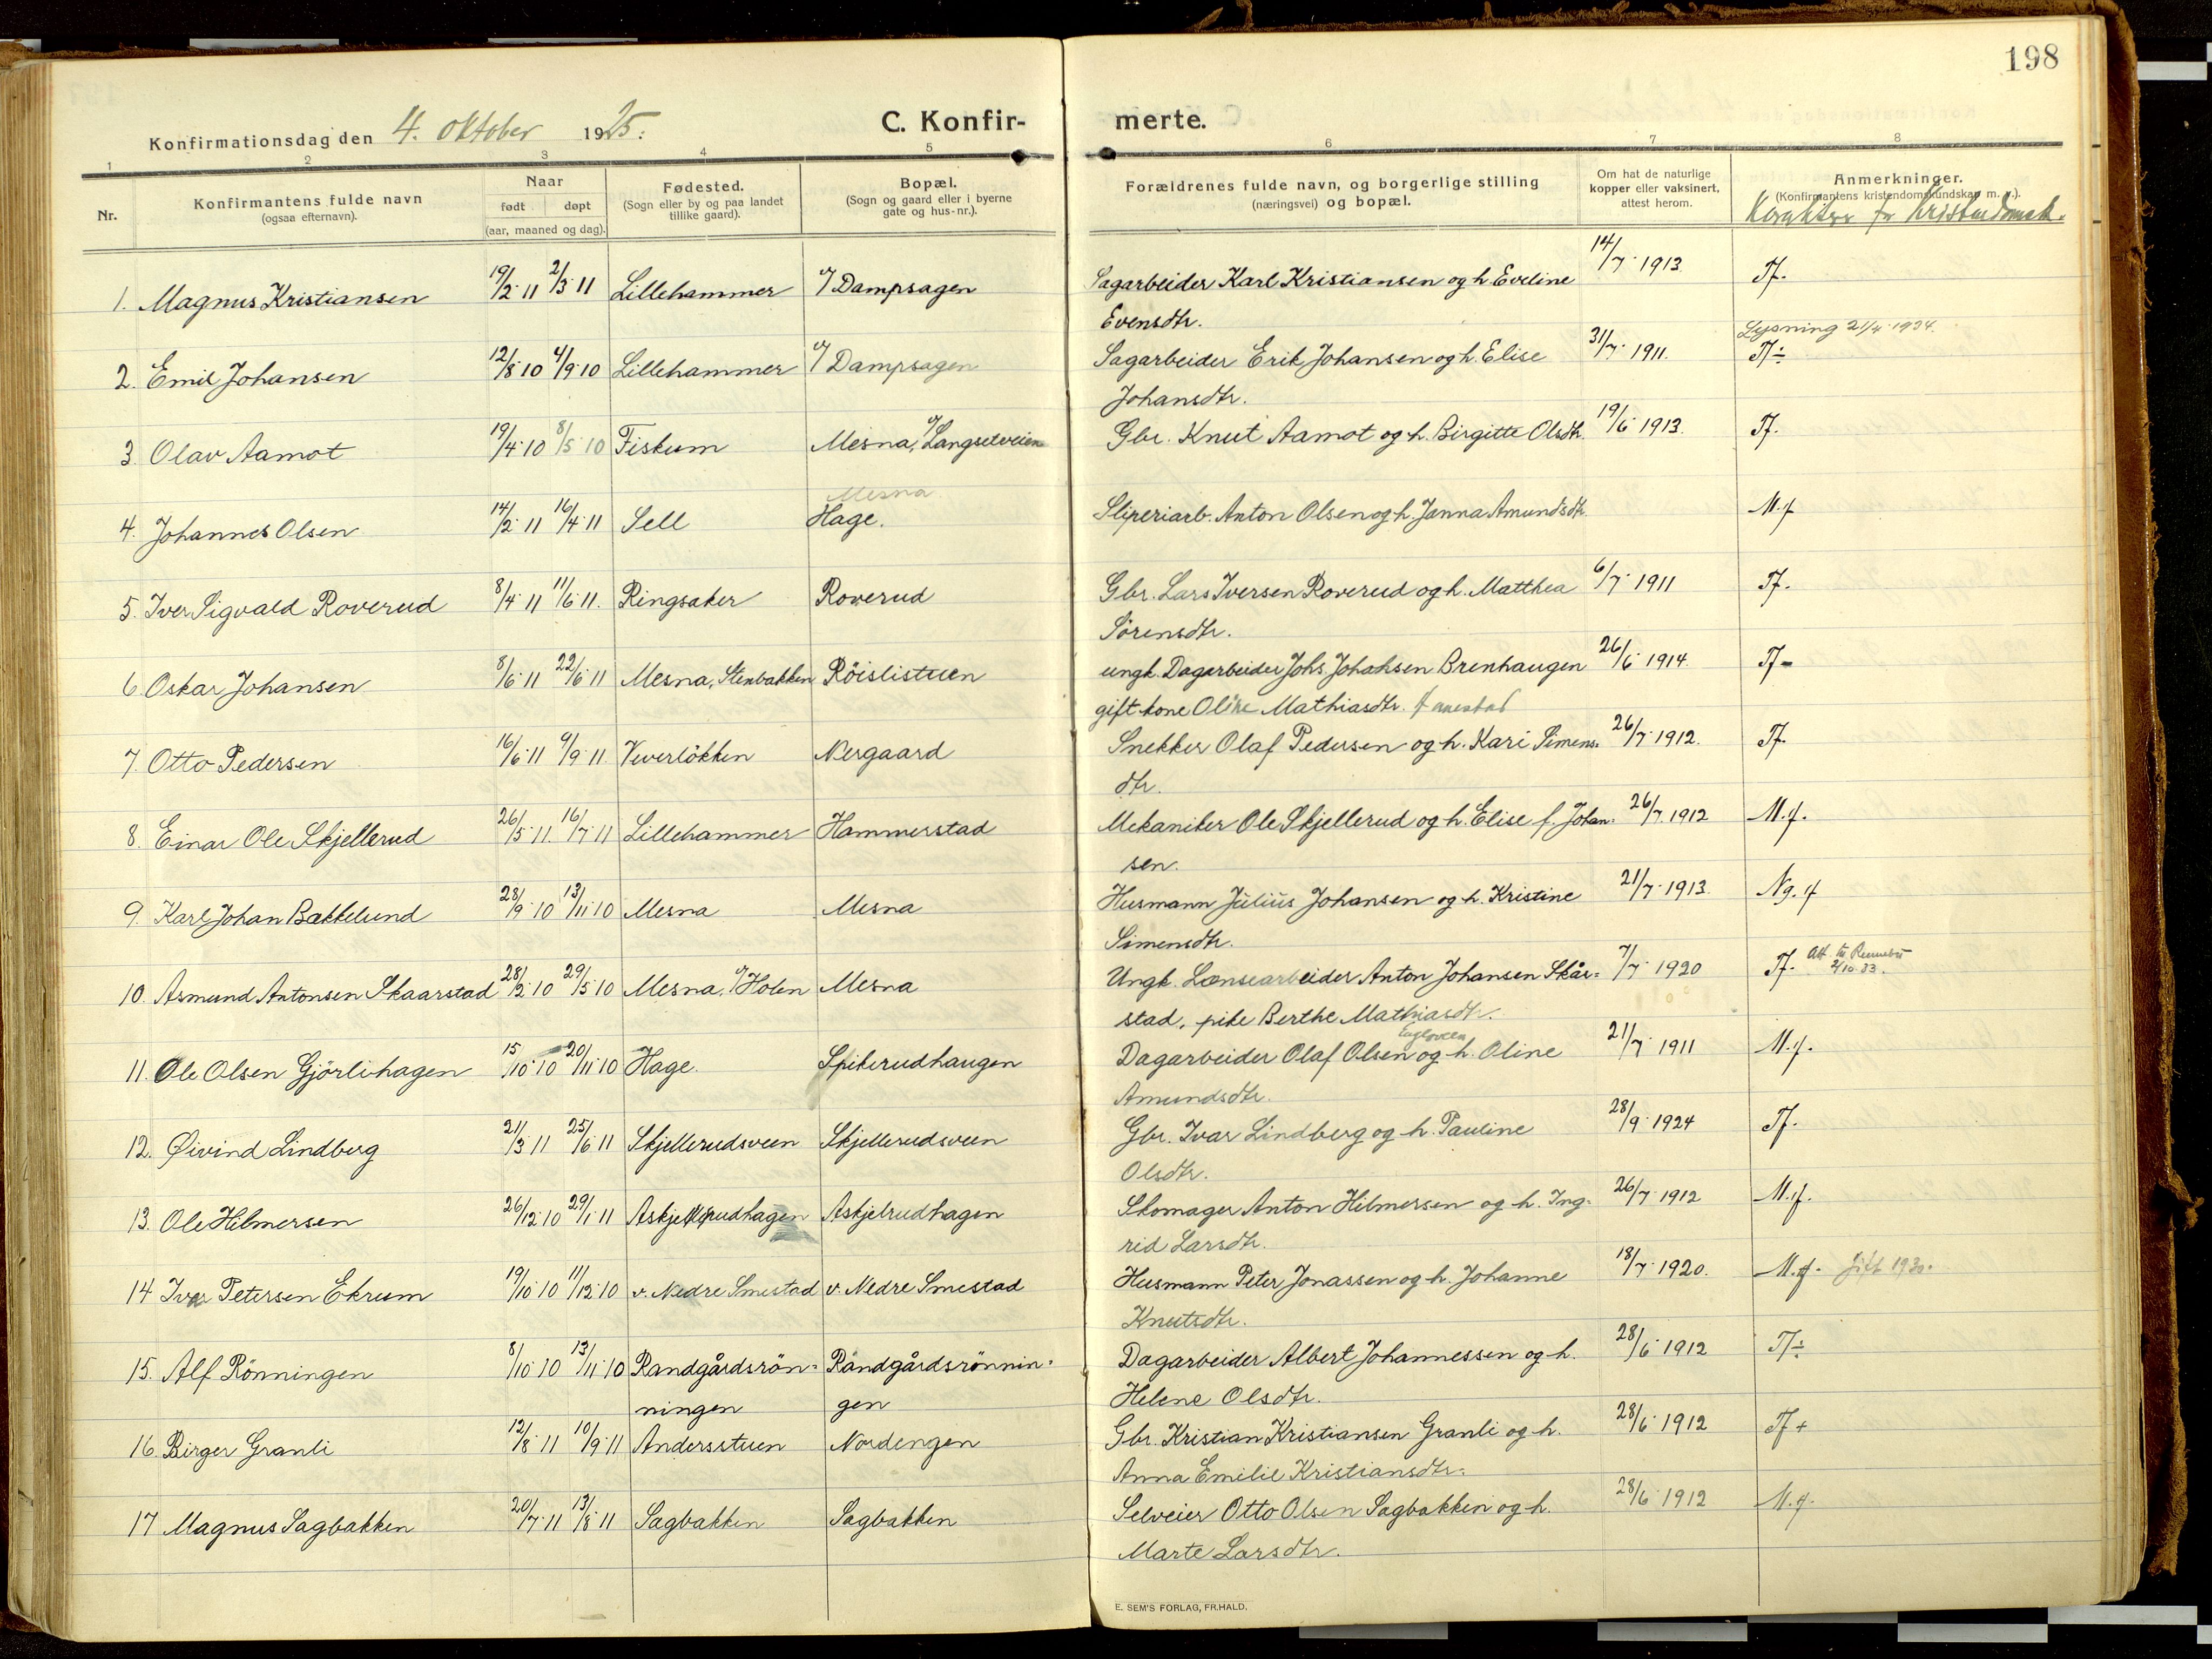 198
Konfirmationsdag den 4. oktober 1925.
C. Konfir-
merte.
1 2 3 4 5 6 7 8
Nr.
Konfirmantens fulde navn
(ogsaa efternavn).
Naar
født døpt
(aar, maaned og dag).
Fødested.
(Sogn eller by og paa landet
tillike gaard).
Bopæl.
(Sogn og gaard eller i byerne
gate og hus-nr.).
Forældrenes fulde navn, og borgerlige stilling
(næringsvei) og bopæl.
Om hat de naturlige
kopper eller vaksinert,
attest herom.
Anmerkninger.
(Konfirmantens kristendomskundskap m. v.).
Karakter for kristendomsk.
1. Magnus Kristiansen 19/2 11 2/3 11 Lillehammer v/ Dampsagen Sagarbeider Karl Kristiansen og h. Eveline 14/7 1913. Tf.
Evensdtr.
Lysning 21/4 1934.
2. Emil Johansen 12/8 10 4/9 10 Lillehammer v/ Dampsagen Sagarbeider Erik Johansen og h. Elise 31/7 1911. Tf÷
Johansdtr.
3 Olav Aamot 19/4 10 8/5 10 Fiskum Mesna, v/ Langsetveien Gbr. Knut Aamot og h. Birgitte Olsdtr. 19/6 1913. Tf.
Mesna
4. Johannes Olsen 14/2 11 16/4 11 Sell Hage. Sliperiarb. Anton Olsen og h. Janna Amundsdtr. M.f
5. Iver Sigvald Roverud 8/4 11 11/6 11. Ringsaker Roverud Gbr. Lars Iversen Roverud og h. Matthea 6/7 1911 Tf.
Sörensdtr.
6 Oskar Johansen 8/6 11 22/6 11 Mesna, Stenbakken Röislistuen ungk. Dagarbeider Johs. Johansen Brenhaugen 26/6 1914. Tf-
gift kone Oline Mathiasdtr.
7. Otto Pedersen 16/6 11 9/9 11. Veverlökken Nergaard Snekker Olaf Pedersen og h. Kari Simens- 26/7 1912. Tf.
dtr.
8. Einar Ole Skjellerud 26/5 11. 16/7 11 Lillehammer Hammerstad Mekaniker Ole Skjellerud og h. Elise f. Johan- 26/7 1912 M.f.
sen.
9. Karl Johan Bakkelund 28/9 10 13/11 10 Mesna Mesna Husmann Julius Johansen og h. Kristine 21/7 1913. Ng. f
Simensdtr.
10. Asmund Antonsen Skaarstad 28/2 10 29/5 10 Mesna, v/ Holen Mesna Ungk. Lænsearbeider Anton Johansen Skår= 7/7 1920 Tf. Att. til Rennebu
2/10 33.
stad, pike Berthe Mathiasdtr.
11. Ole Olsen Gjörlihagen 15/10 10 20/11 10 Hage. Spikerudhaugen Dagarbeider Olaf Olsen og h. Oline 21/7 1911 M.f.
Amundsdtr.
12. Øivind Lindberg 21/3 11 25/6 11 Skjellerudsveen Skjellerudsveen Gbr. Ivar Lindberg og h. Pauline 28/9 1924 Tf.
Olsdtr.
13. Ole Hilmersen 26/12 10 29/1 11 Askjelrudhagen Askjelrudhagen Skomager Anton Hilmersen og h. Ing- 26/7 1912 M.f.
rid Larsdtr.
14 Ivar Petersen Ekrum 19/10 10 11/12 10 v. Nedre Smestad v. Nedre Smestad Husmann Peter Jonassen og h. Johanne 18/7 1920. M.f. Gift 1930.
Knutsdtr.
15. Alf Rönningen 8/10 10 13/11 10 Randgårdsrön= Randgårdsrönnin= Dagarbeider Albert Johannessen og h. 28/6 1912 Tf÷
ningen gen Helene Olsdtr.
16. Birger Granli 12/8 11 10/9 11 Andersstuen Nordengen Gbr. Kristian Kristiansen Granli og h. 28/6 1912 Tf+
Anna Emilie Kristiansdtr.
17 Magnus Sagbakken 20/7 11 13/8 11 Sagbakken Sagbakken Selveier Otto Olsen Sagbakken og h. 28/6 1912 M.f.
Marte Larsdtr.
E. SEM'S FORLAG, FR.HALD.